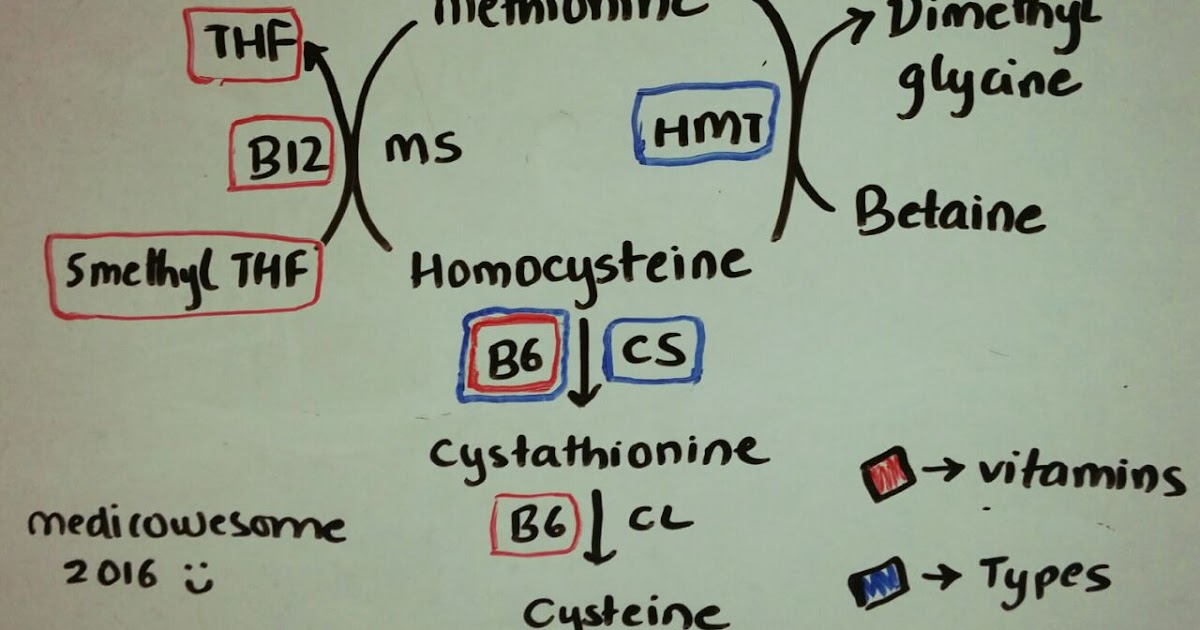 methionine
THF
Dimethyl
glycine
B12
MS
HMT
Betaine
5methyl THF
Homocysteine
B6
CS
Cystathionine
→ vitamins
B6
CL
medicowesome
2016 :)
→ Types
Cysteine